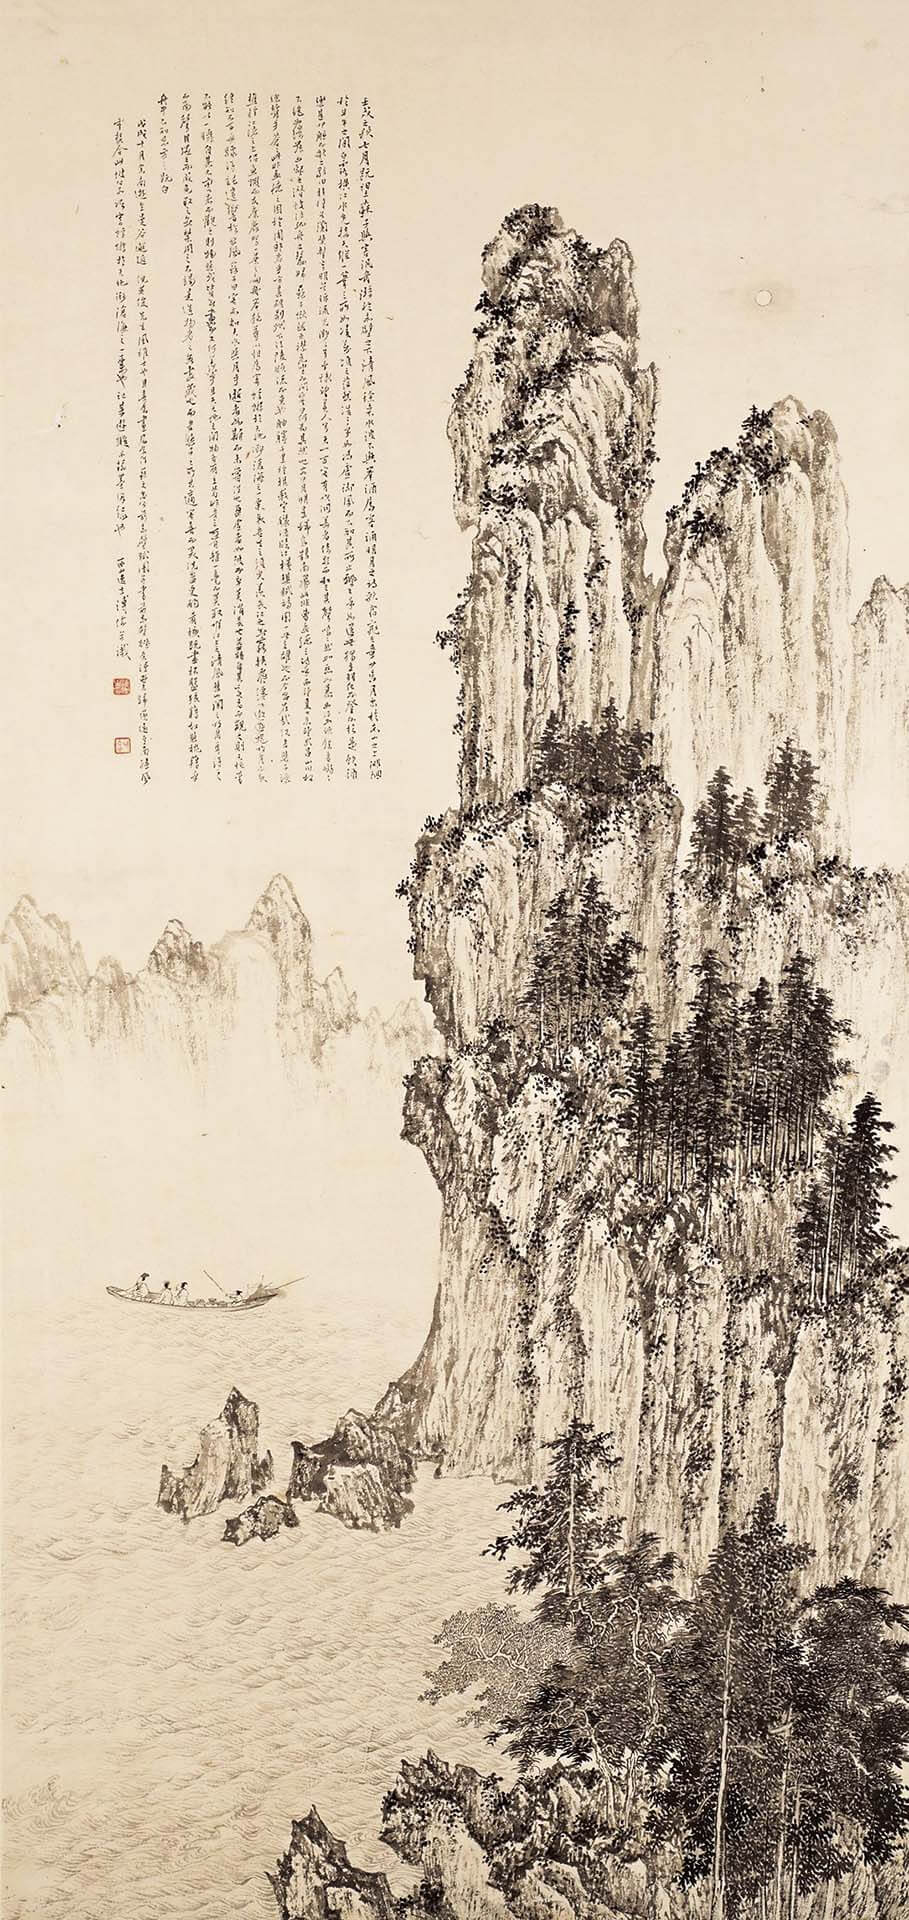 壬戌之秋七月既望蘇子與客泛舟游於赤壁之下清風徐來水波不興舉酒屬客誦明月之詩歌窈窕之章少焉月出於東山之上徘徊
於斗牛之間白露橫江水光接天縱一葦之所如凌萬頃之茫然浩浩乎如馮虛御風而不知其所止飄飄乎如遺世獨立羽化而登仙於是飲酒
樂甚扣舷而歌之歌曰桂棹兮蘭槳擊空明兮溯流光渺渺兮予懷望美人兮天一方客有吹洞簫者倚歌而和之其聲嗚嗚然如怨如慕如泣如訴餘音嫋嫋
不絕如縷舞幽壑之潛蛟泣孤舟之嫠婦蘇子愀然正襟危坐而問客曰何為其然也客曰月明星稀烏鵲南飛此非曹孟德之詩乎西望夏口東望武昌山川相
繆鬱乎蒼蒼此非孟德之困於周郎者乎方其破荊州下江陵順流而東也舳艫千里旌旗蔽空釃酒臨江橫槊賦詩固一世之雄也而今安在哉況吾與子漁
樵於江渚之上侶魚蝦而友麋鹿駕一葉之扁舟舉匏樽以相屬寄蜉蝣於天地渺滄海之一粟哀吾生之須臾羨長江之無窮挾飛仙以遨遊抱明月而長
終知不可乎驟得託遺響於悲風蘇子曰客亦知夫水與月乎逝者如斯而未嘗往也盈虛者如彼而卒莫消長也蓋將自其變者而觀之則天地曾
不能以一瞬自其不變者而觀之則物與我皆無盡也而又何羨乎且夫天地之間物各有主苟非吾之所有雖一毫而莫取惟江上之清風與山間之明月耳得之
而為聲目遇之而成色取之無禁用之不竭是造物者之無盡藏也而吾與子之所共適客喜而笑洗盞更酌肴核既盡杯盤狼藉相與枕藉乎
舟中不知東方之既白
戊戌十月先生風雅
寄蜉蝣於天地渺滄海之一粟也西山逸士溥儒并識